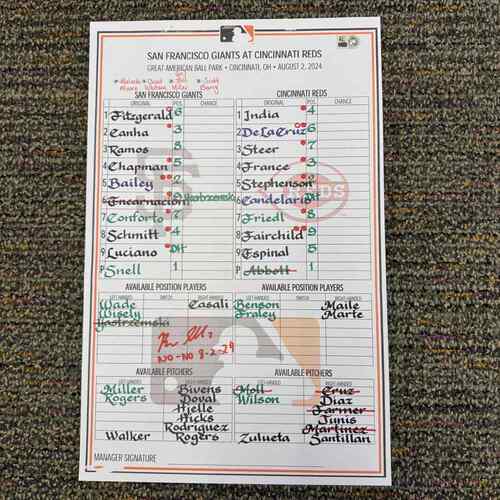 SAN FRANCISCO GIANTS AT CINCINNATI REDS
GREAT AMERICAN BALL PARK • CINCINNATI, OH • AUGUST 2, 2024
SAN FRANCISCO GIANTS
ORIGINAL POS. CHANGE
1 Fitzgerald 6
2 Canha 3
3 Ramos 8
4 Chapman 5
5 Bailey 2
6 Encarnacion 9 Yastrzemski
7 Conforto 7
8 Schmitt 4
9 Luciano DH
P Snell 1
CINCINNATI REDS
ORIGINAL POS. CHANGE
1 India 4
2 De La Cruz 6
3 Steer 7
4 France 3
5 Stephenson 2
6 Candelario DH
7 Friedl 8
8 Fairchild 9
9 Espinal 5
P Abbott 1
REDS
AVAILABLE POSITION PLAYERS
LEFT-HANDED SWITCH RIGHT-HANDED
Wade Casali
Wisely
Yastrzemski
NO-NO 8-2-24
AVAILABLE POSITION PLAYERS
LEFT-HANDED SWITCH RIGHT-HANDED
Benson Maile
Fraley Marte
AVAILABLE PITCHERS
LEFT-HANDED RIGHT-HANDED
Miller Bivens
Rogers Doval
Hjelle
Hicks
Rodriguez
Walker Rogers
AVAILABLE PITCHERS
LEFT-HANDED RIGHT-HANDED
Moll Cruz
Wilson Diaz
Farmer
Junis
Martinez
Zulueta Santillan
MANAGER SIGNATURE